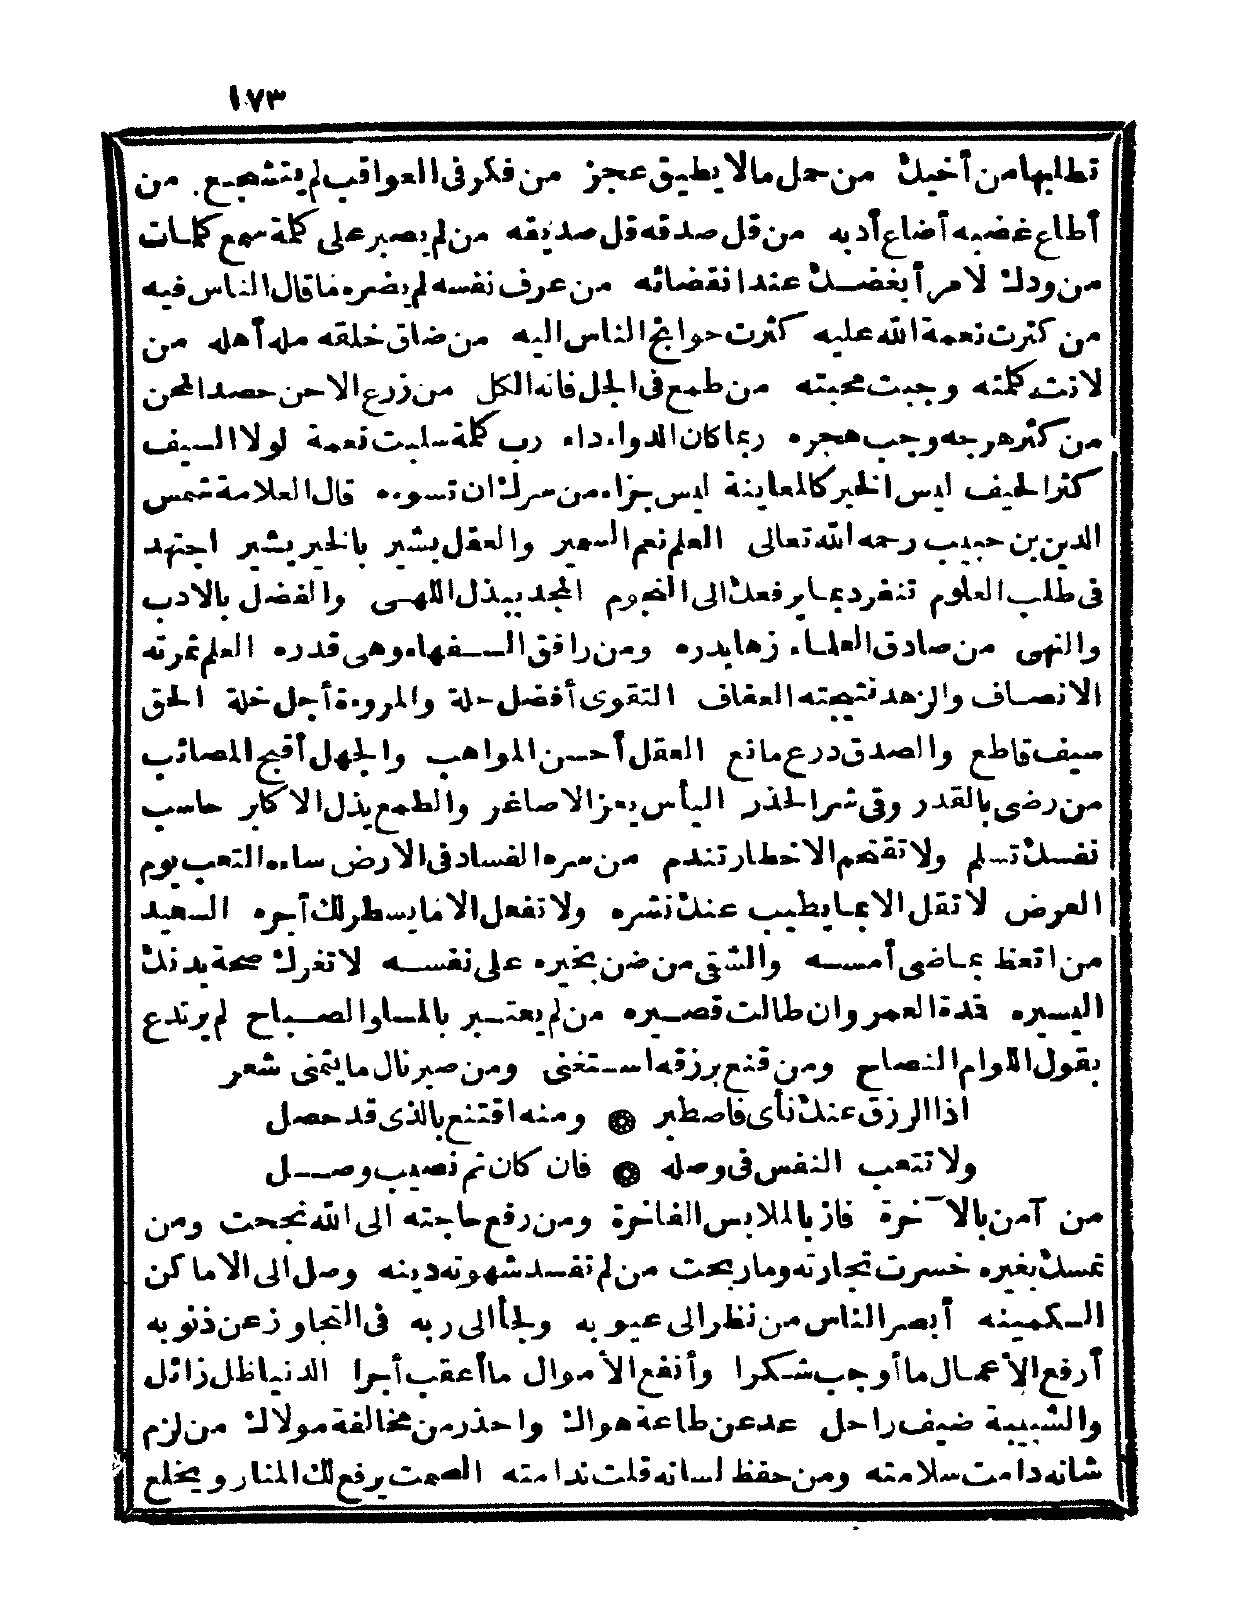 ١٧٣
تطلبها من أخيك من حمل مالا يطيق عجز من فكر فى العواقب لم يتشجع . من
أطاع غضبه أضاع أدبه من قل صدقه قل صديقه من لم يصبر على كلمة سمع كلمات
من ودك لامر أبغضك عند انقضائه من عرف نفسه لم يضره ما قال الناس فيه
من كثرت نعمة الله عليه كثرت حوائج الناس اليه من ضاق خلقه مله أهله من
لانت كلمته وجبت محبته من طمع فى الجل فاته الكل من زرع الاحن حصد المحن
من كثر هرجه وجب هجره ربما كان الدواء داء رب كلمة سلبت نعمة لولا السيف
كثر الحيف ليس الخبر كالمعاينة ليس جزاء من سرك ان تسوءه قال العلامة شمس
الدين بن حبيب رحمه الله تعالى العلم نعم السمير والعقل بشير بالخير يشير اجتهد
فى طلب العلوم تنفرد بما يرفعك الى النجوم المجد ببذل اللهى والفضل بالادب
والنهى من صادق العلماء زها بدره ومن رافق السفهاء وهى قدره العلم ثمرته
الانصاف والزهد نتيجته العفاف التقوى أفضل حلة والمروءة أجل خلة الحق
سيف قاطع والصدق درع مانع العقل أحسن المواهب والجهل أقبح المصائب
من رضى بالقدر وقى شر الحذر اليأس يعز الاصاغر والطمع يذل الاكابر حاسب
نفسك تسلم ولا تقتحم الاخطار تندم من سره الفساد فى الارض ساءه التعب يوم
العرض لا تقل الا بما يطيب عنك نشره ولا تفعل الا ما يسطر لك أجره السعيد
من اتعظ بماضى أمسه والشقى من ضن بخيره على نفسه لا تغرك صحة بدنك
اليسيره فمدة العمر وان طالت قصيره من لم يعتبر بالمسا والصباح لم يرتدع
بقول اللوام النصاح ومن قنع برزقه استغنى ومن صبر نال ما يتمنى شعر
اذا الرزق عنك نأى فاصطبر ۞ ومنه اقتنع بالذى قد حصل
ولا تتعب النفس فى وصله ۞ فان كان ثم نصيب وصل
من آمن بالآخرة فاز بالملابس الفاخرة ومن رفع حاجته الى الله نجحت ومن
تمسك بغيره خسرت تجارته وما ربحت من لم تفسد شهوته دينه وصل الى الاماكن
السكمينه أبصر الناس من نظر الى عيوبه ولجأ الى ربه فى التجاوز عن ذنوبه
أرفع الأعمال ما أوجب شكرا وأنفع الأموال ما أعقب أجرا الدنيا ظل زائل
والشبيبة ضيف راحل عد عن طاعة هواك واحذر من مخالفة مولاك من لزم
شانه دامت سلامته ومن حفظ لسانه قلت ندامته الصمت يرفع لك المنار ويخلع